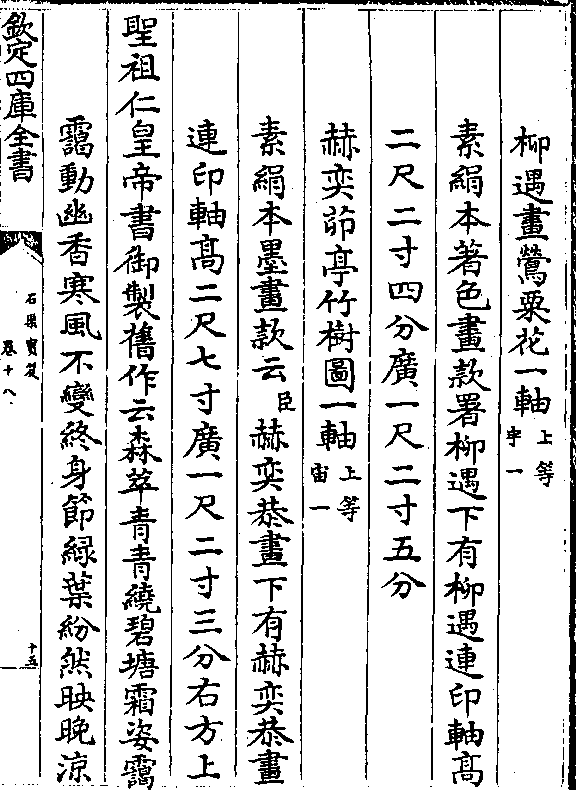 柳遇畫鶯粟花一軸上等宇一
素絹本著色畫款署柳遇下有柳遇連印軸髙
二尺二寸四分廣一尺二寸五分
赫奕茆亭竹樹圖一軸上等宙一
素絹本墨畫款云臣赫奕恭畫下有赫奕恭畫
連印軸髙二尺七寸廣一尺二寸三分右方上
聖祖仁皇帝書御製舊作云森萃青青繞碧塘霜姿靄
靄動幽香寒風不變終身節緑葉紛然映晚涼
欽定四庫全書
石渠寶笈
卷十八
十五